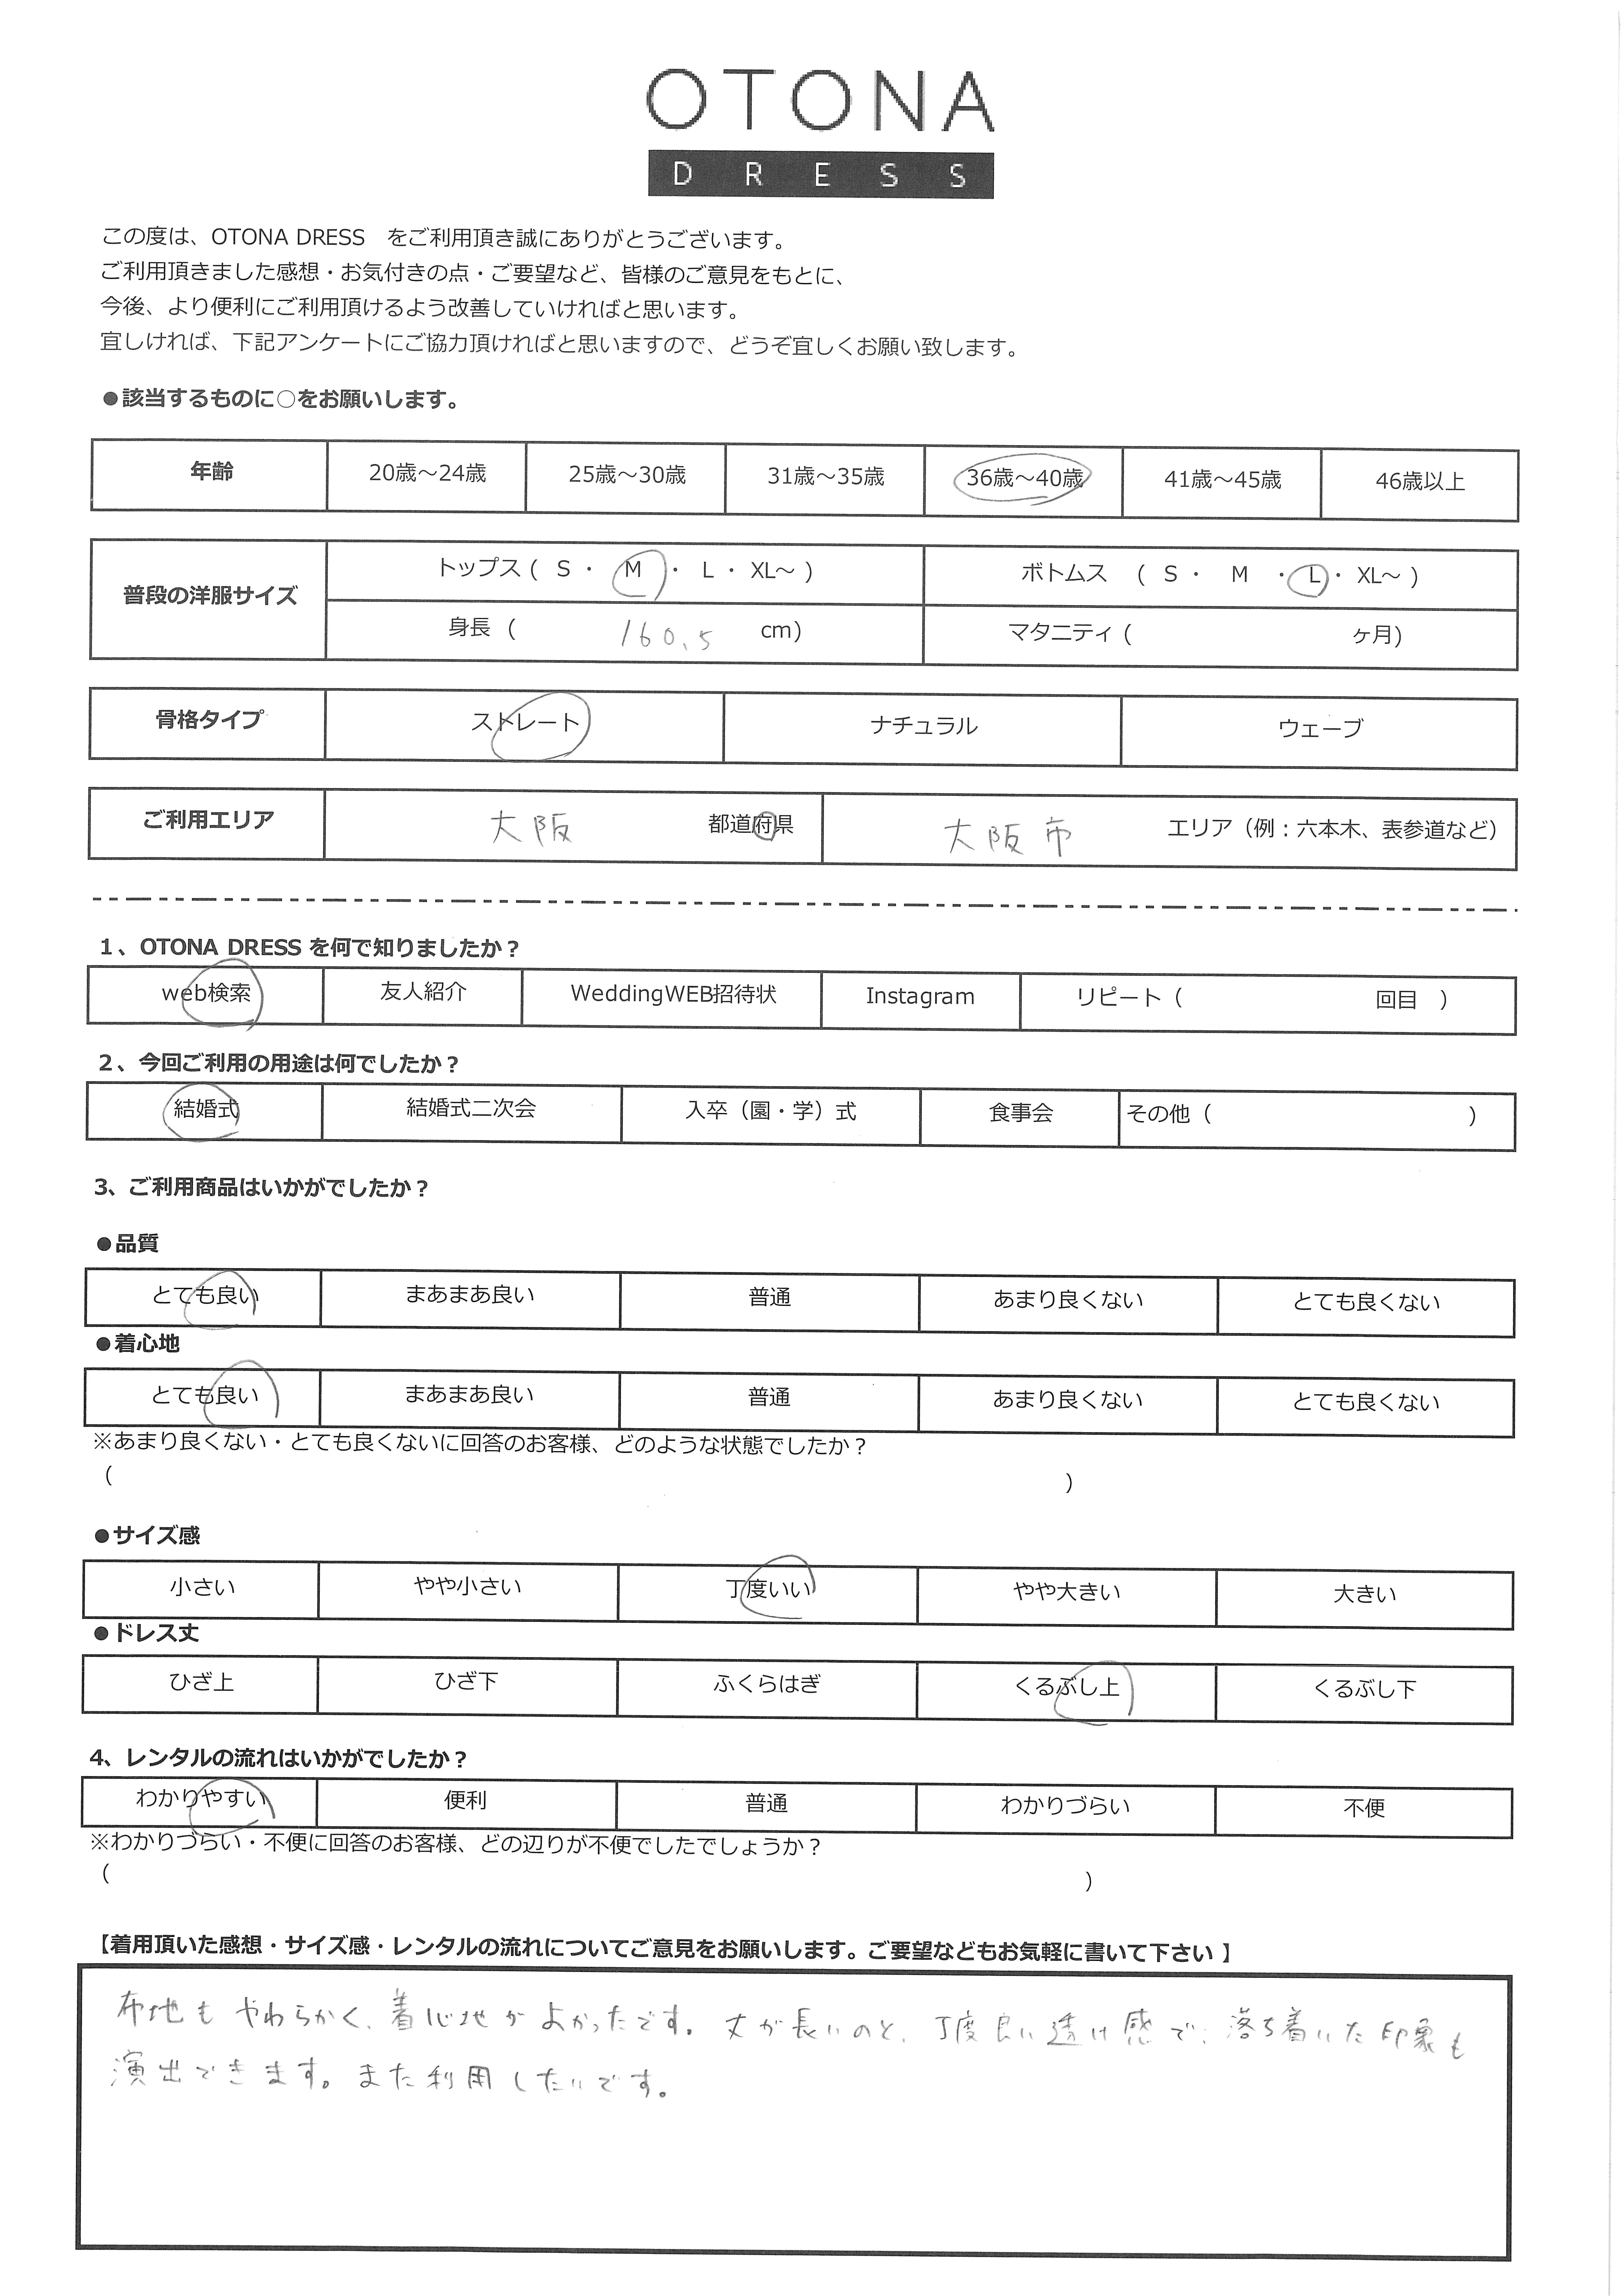 OTONA
DRESS
この度は、OTONA DRESS　をご利用頂き誠にありがとうございます。
ご利用頂きました感想・お気付きの点・ご要望など、皆様のご意見をもとに、
今後、より便利にご利用頂けるよう改善していければと思います。
宜しければ、下記アンケートにご協力頂ければと思いますので、どうぞ宜しくお願い致します。
●該当するものに○をお願いします。
年齢 20歳～24歳 25歳～30歳 31歳～35歳 36歳～40歳 41歳～45歳 46歳以上
普段の洋服サイズ
トップス ( S ・ M ・ L ・ XL～ ) ボトムス ( S ・ M ・ L ・ XL～ )
身長 ( 160.5 cm) マタニティ ( ヶ月)
骨格タイプ ストレート ナチュラル ウェーブ
ご利用エリア 大阪 都道府県 大阪市 エリア（例：六本木、表参道など）
1、OTONA DRESS を何で知りましたか？
web検索 友人紹介 WeddingWEB招待状 Instagram リピート（ 回目 ）
2、今回ご利用の用途は何でしたか？
結婚式 結婚式二次会 入卒（園・学）式 食事会 その他（ ）
3、ご利用商品はいかがでしたか？
●品質
とても良い まあまあ良い 普通 あまり良くない とても良くない
●着心地
とても良い まあまあ良い 普通 あまり良くない とても良くない
※あまり良くない・とても良くないに回答のお客様、どのような状態でしたか？
( )
●サイズ感
小さい やや小さい 丁度いい やや大きい 大きい
●ドレス丈
ひざ上 ひざ下 ふくらはぎ くるぶし上 くるぶし下
4、レンタルの流れはいかがでしたか？
わかりやすい 便利 普通 わかりづらい 不便
※わかりづらい・不便に回答のお客様、どの辺りが不便でしたでしょうか？
( )
【着用頂いた感想・サイズ感・レンタルの流れについてご意見をお願いします。ご要望などもお気軽に書いて下さい 】
布地もやわらかく、着心地がよかったです。丈が長いのと、丁度良い透け感で、落ち着いた印象も
演出できます。また利用したいです。